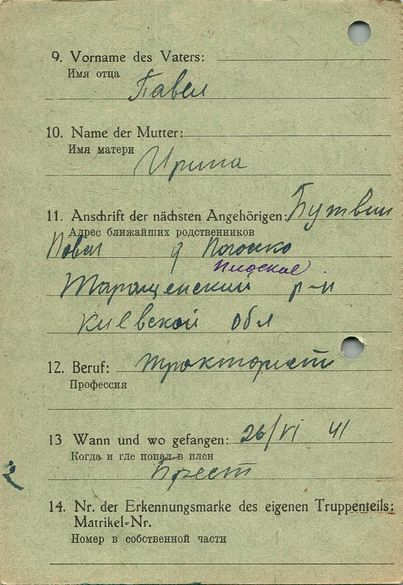 9. Vorname des Vaters:
Имя отца
Павел
10. Name der Mutter:
Имя матери
Ирина
11. Anschrift der nächsten Angehörigen: Бутвин
Адрес ближайших родственников
Павел д
Плоское
Таращенский р-н
Киевской обл
12. Beruf: тракторист
Профессия
13 Wann und wo gefangen: 26/VI 41
Когда и где попал в плен
Брест
14. Nr. der Erkennungsmarke des eigenen Truppenteils:
Matrikel-Nr.
Номер в собственной части